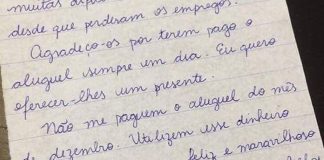 muitas
desde que perderam os empregos.
Agradeço-os por terem pago o
aluguel sempre em dia. Eu quero
oferecer-lhes um presente.
Não me paguem o aluguel do mês
de dezembro. Utilizem esse dinheiro
feliz e maravilhoso